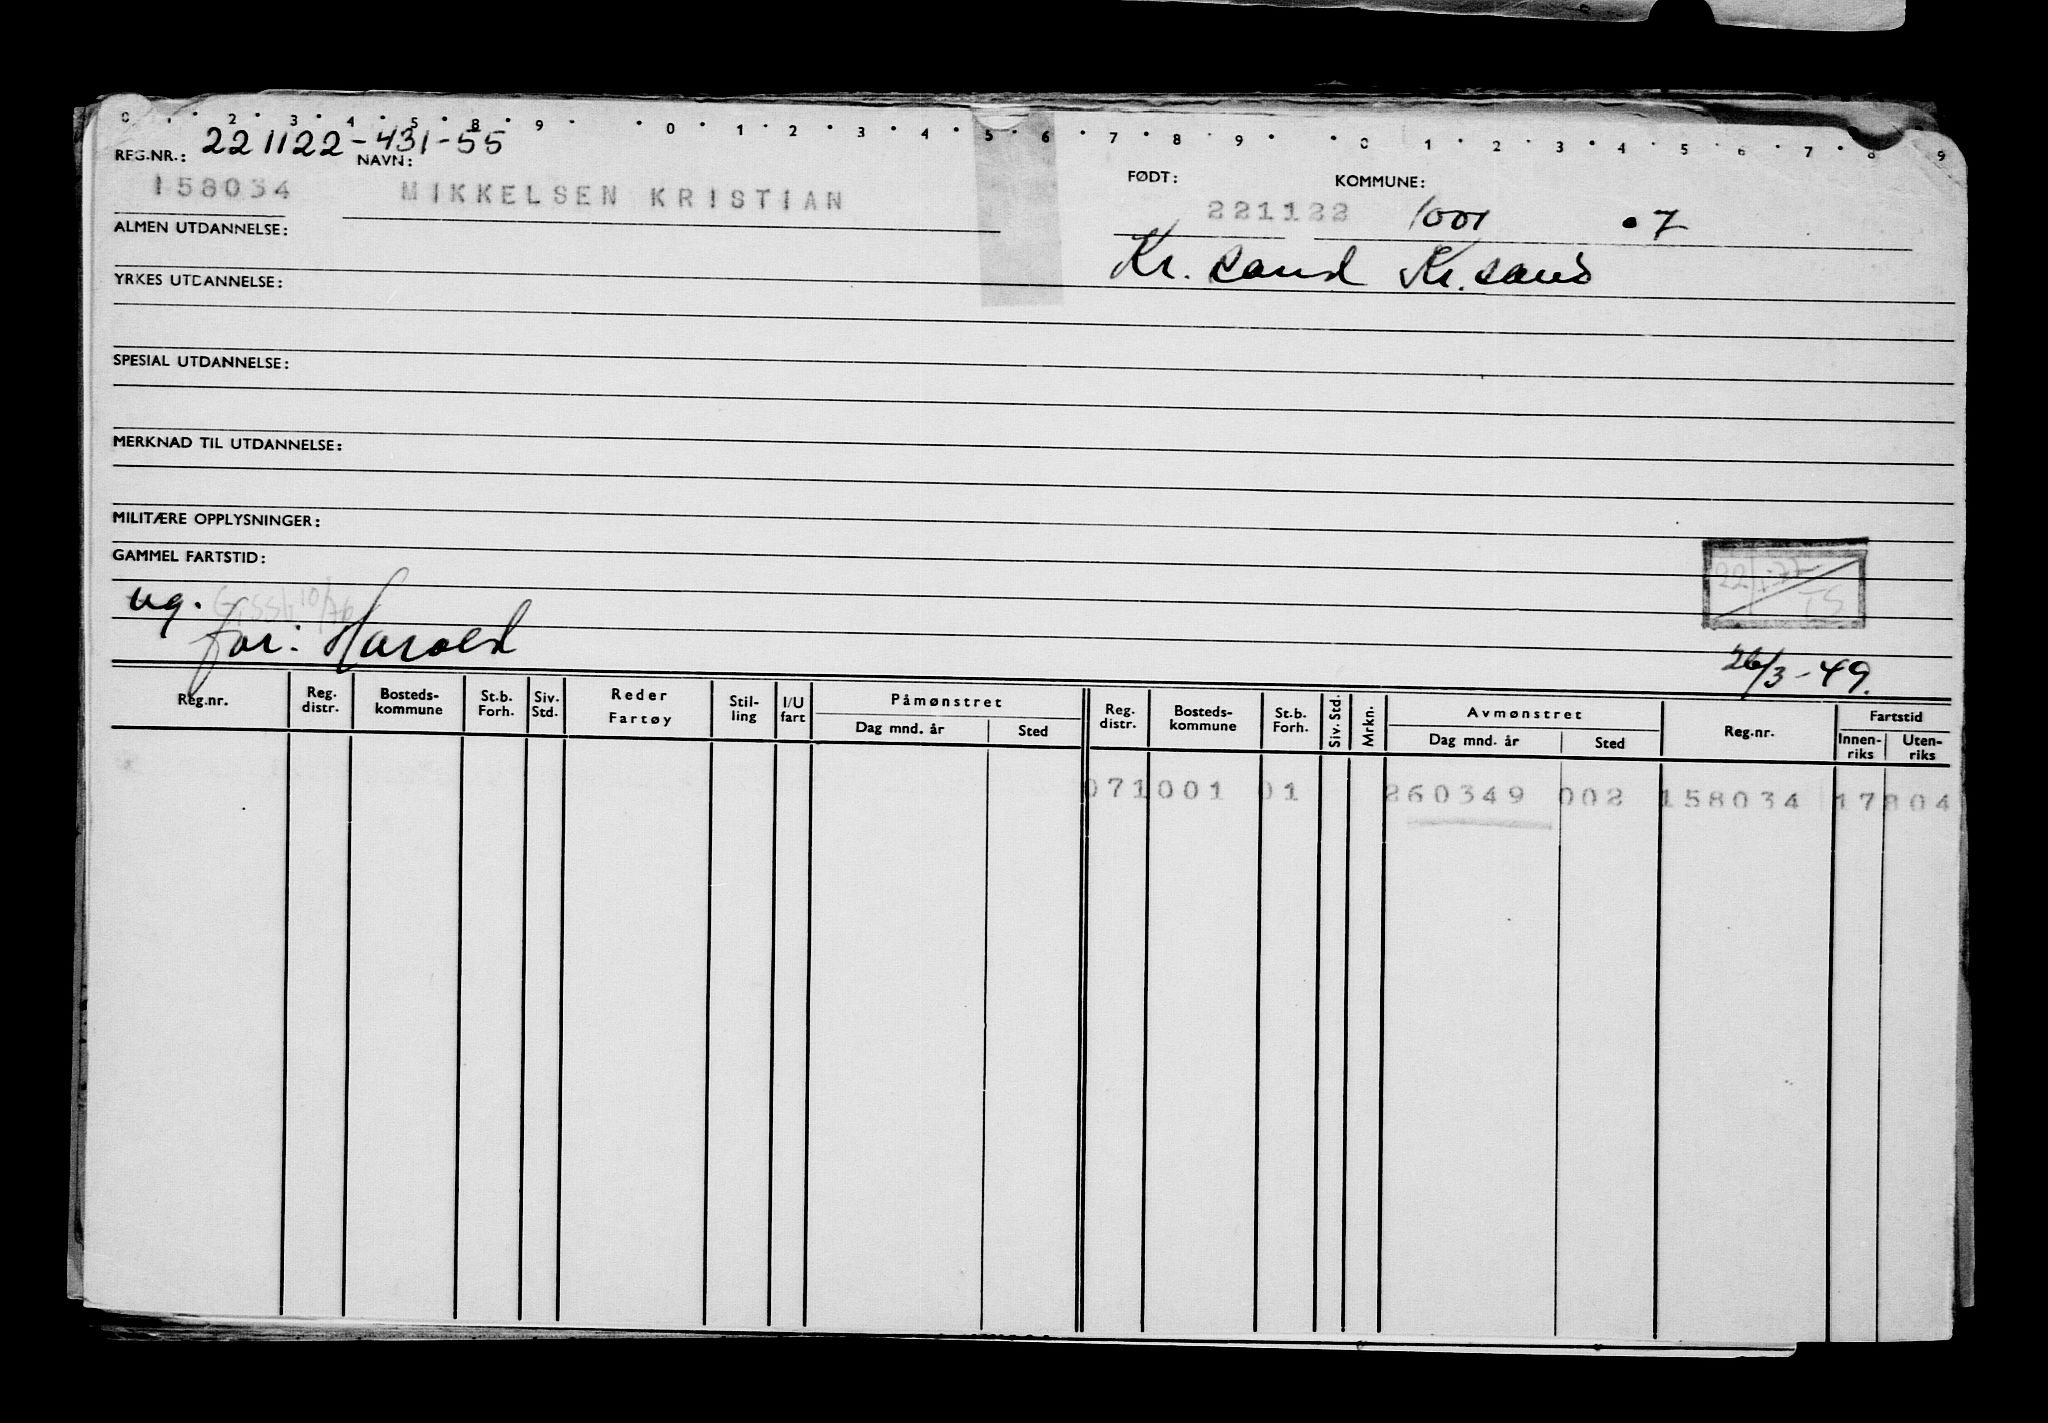 0 . . 2 . 3 . 4 . 5 . 8 . 9 . . 0 . 1 . 2 . 3 . 4 . 5 . 6 . 7 . 8 . 9 . . 0 . 1 . 2 . 3 . 4 . 5 . 6 . 7 . 8 . 9
221122-431-55
REG.NR.: NAVN: FØDT: KOMMUNE:
158034 MIKKELSEN KRISTIAN 221122 1001 •7
ALMEN UTDANNELSE:
Kr. sand Kr. sand
YRKES UTDANNELSE:
SPESIAL UTDANNELSE:
MERKNAD TIL UTDANNELSE:
MILITÆRE OPPLYSNINGER:
GAMMEL FARTSTID:
ug. 10/76
far: Harald 26/3-49.
Reg.nr. Reg. distr. Bosteds-kommune St.b. Forh. Siv. Std. Reder Fartøy Stil-ling I/U fart Påmønstret Dag mnd. år Sted Reg. distr. Bosteds-kommune St.b. Forh. Siv. Std. Mrkn. Avmønstret Dag mnd. år Sted Reg.nr. Fartstid Innen-riks Uten-riks
071001 01 260349 002 158034 17804